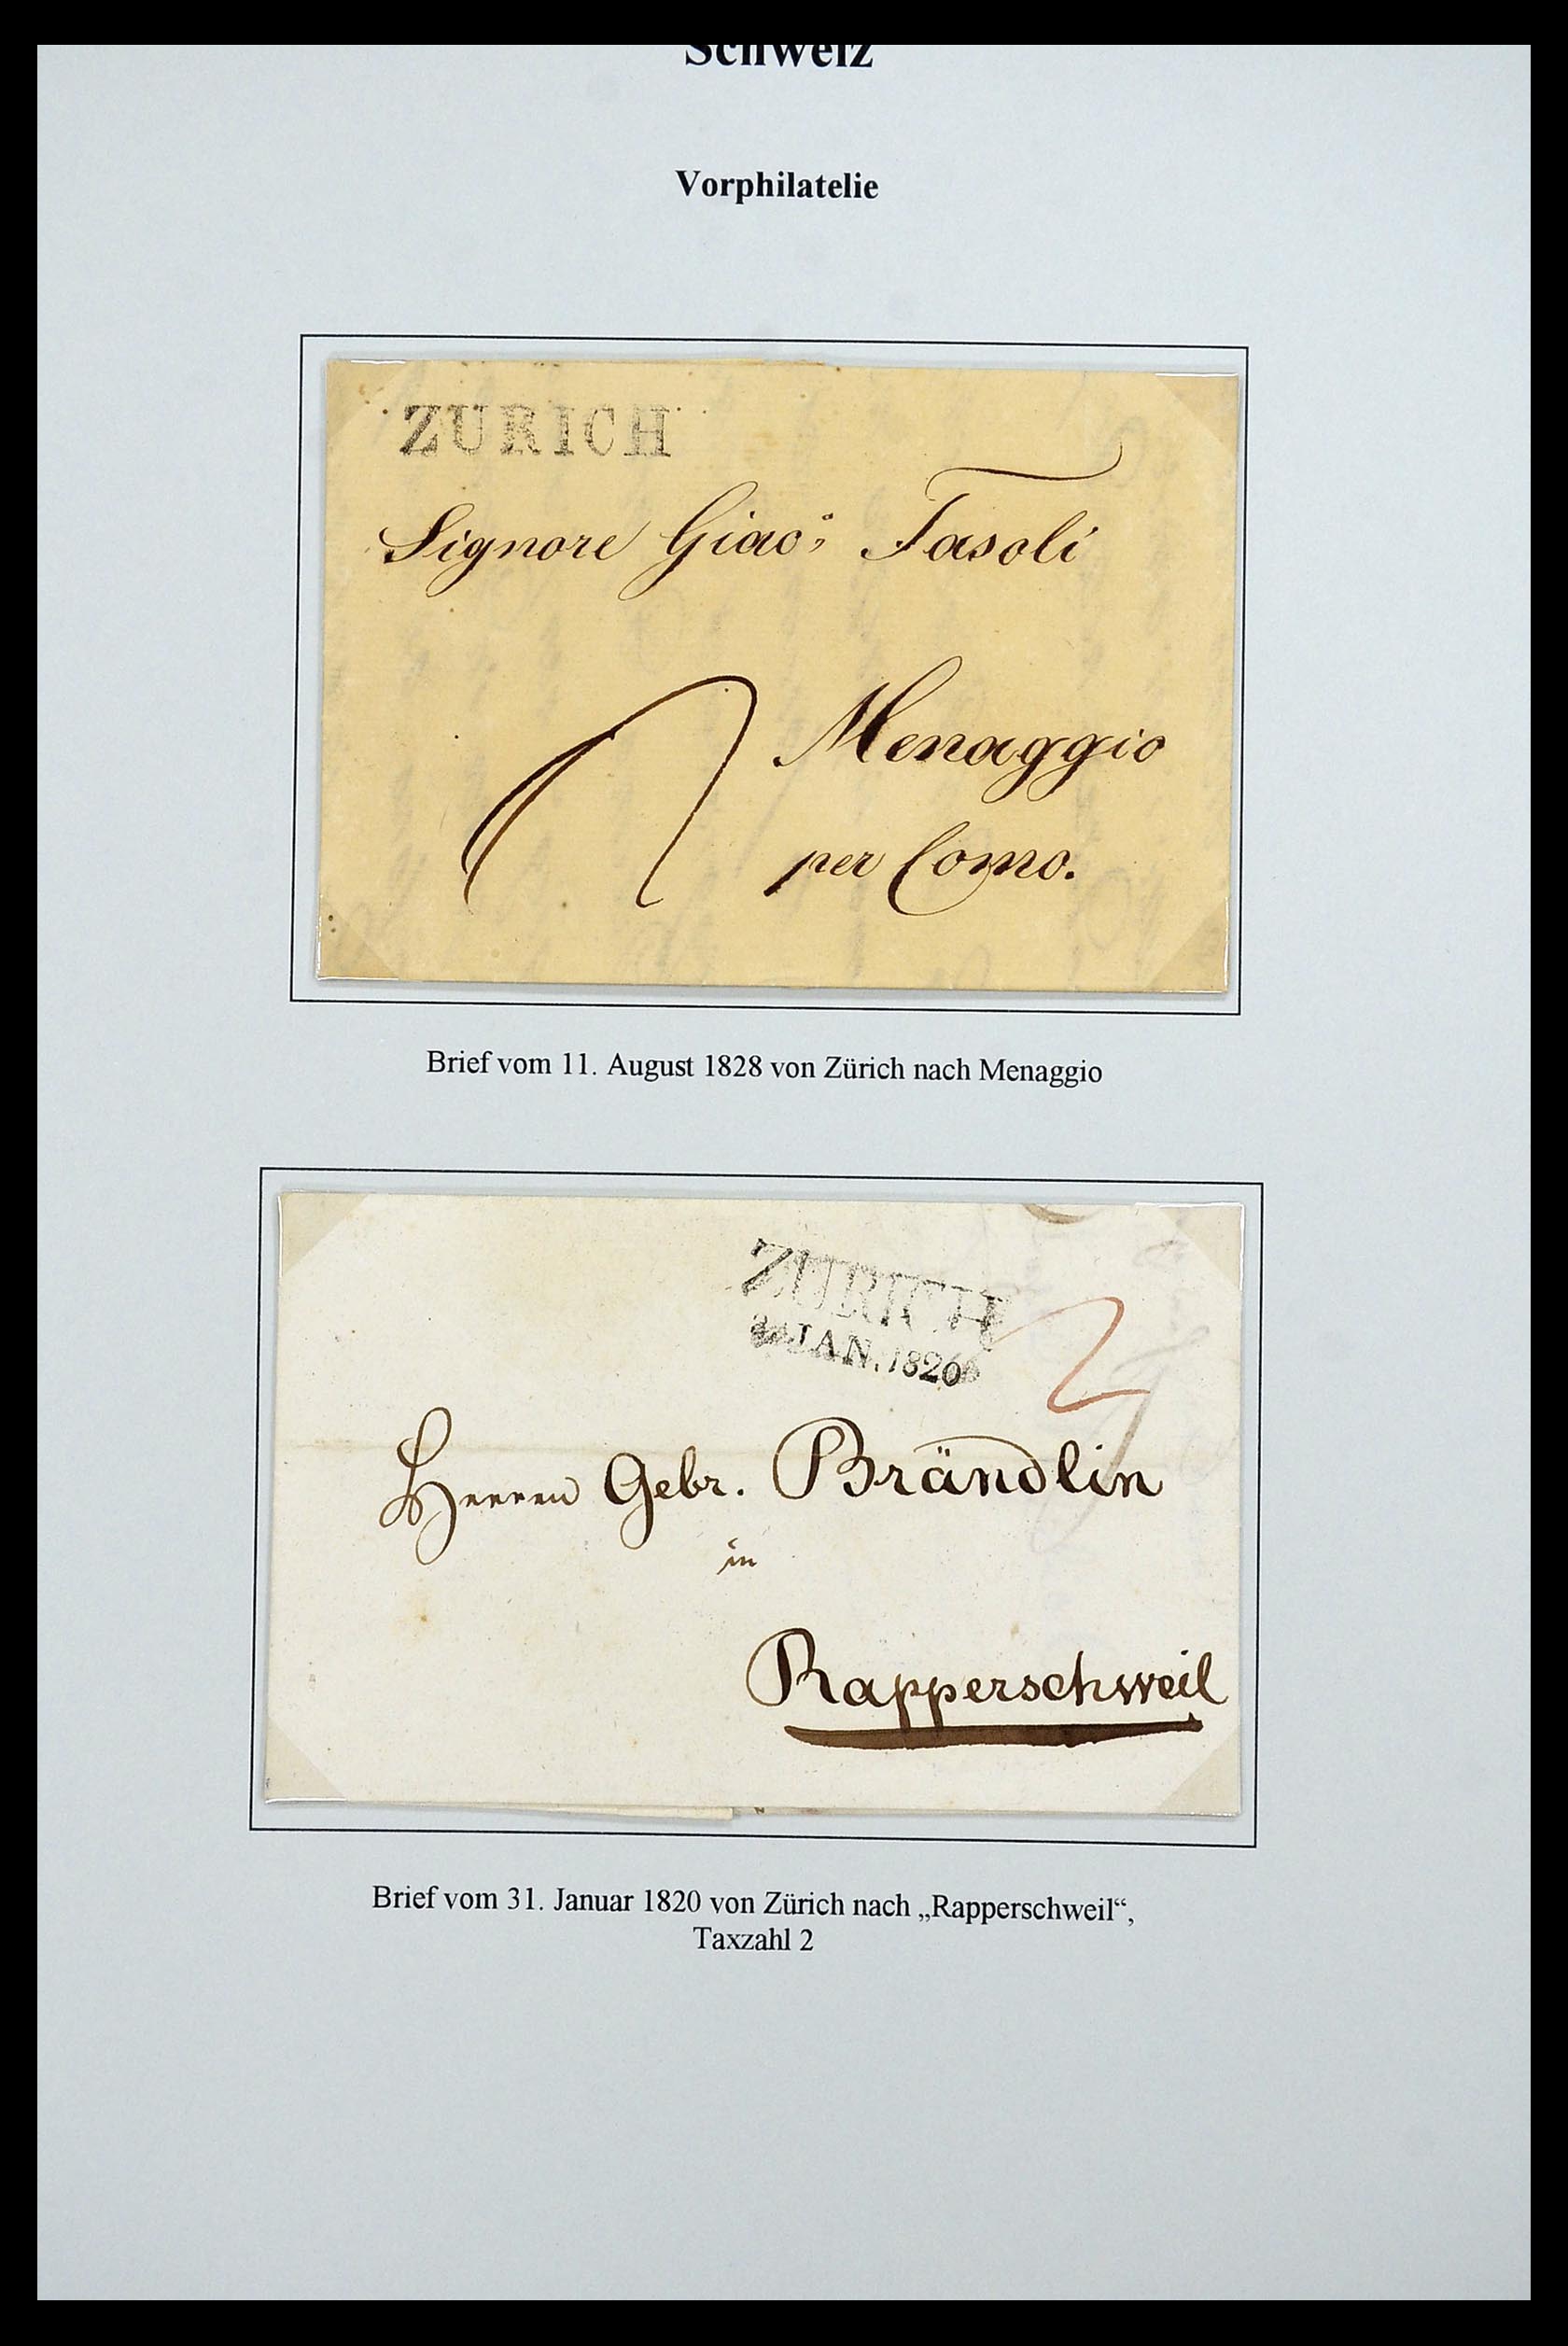 Schweiz
Vorphilatelie
ZURICH
Signore Giaco: Fasoli
Menaggio
per Como.
Brief vom 11. August 1828 von Zürich nach Menaggio
ZURICH
JAN. 1820
2
Herren Gebr. Brändlin
in
Rapperschweil
Brief vom 31. Januar 1820 von Zürich nach „Rapperschweil“,
Taxzahl 2